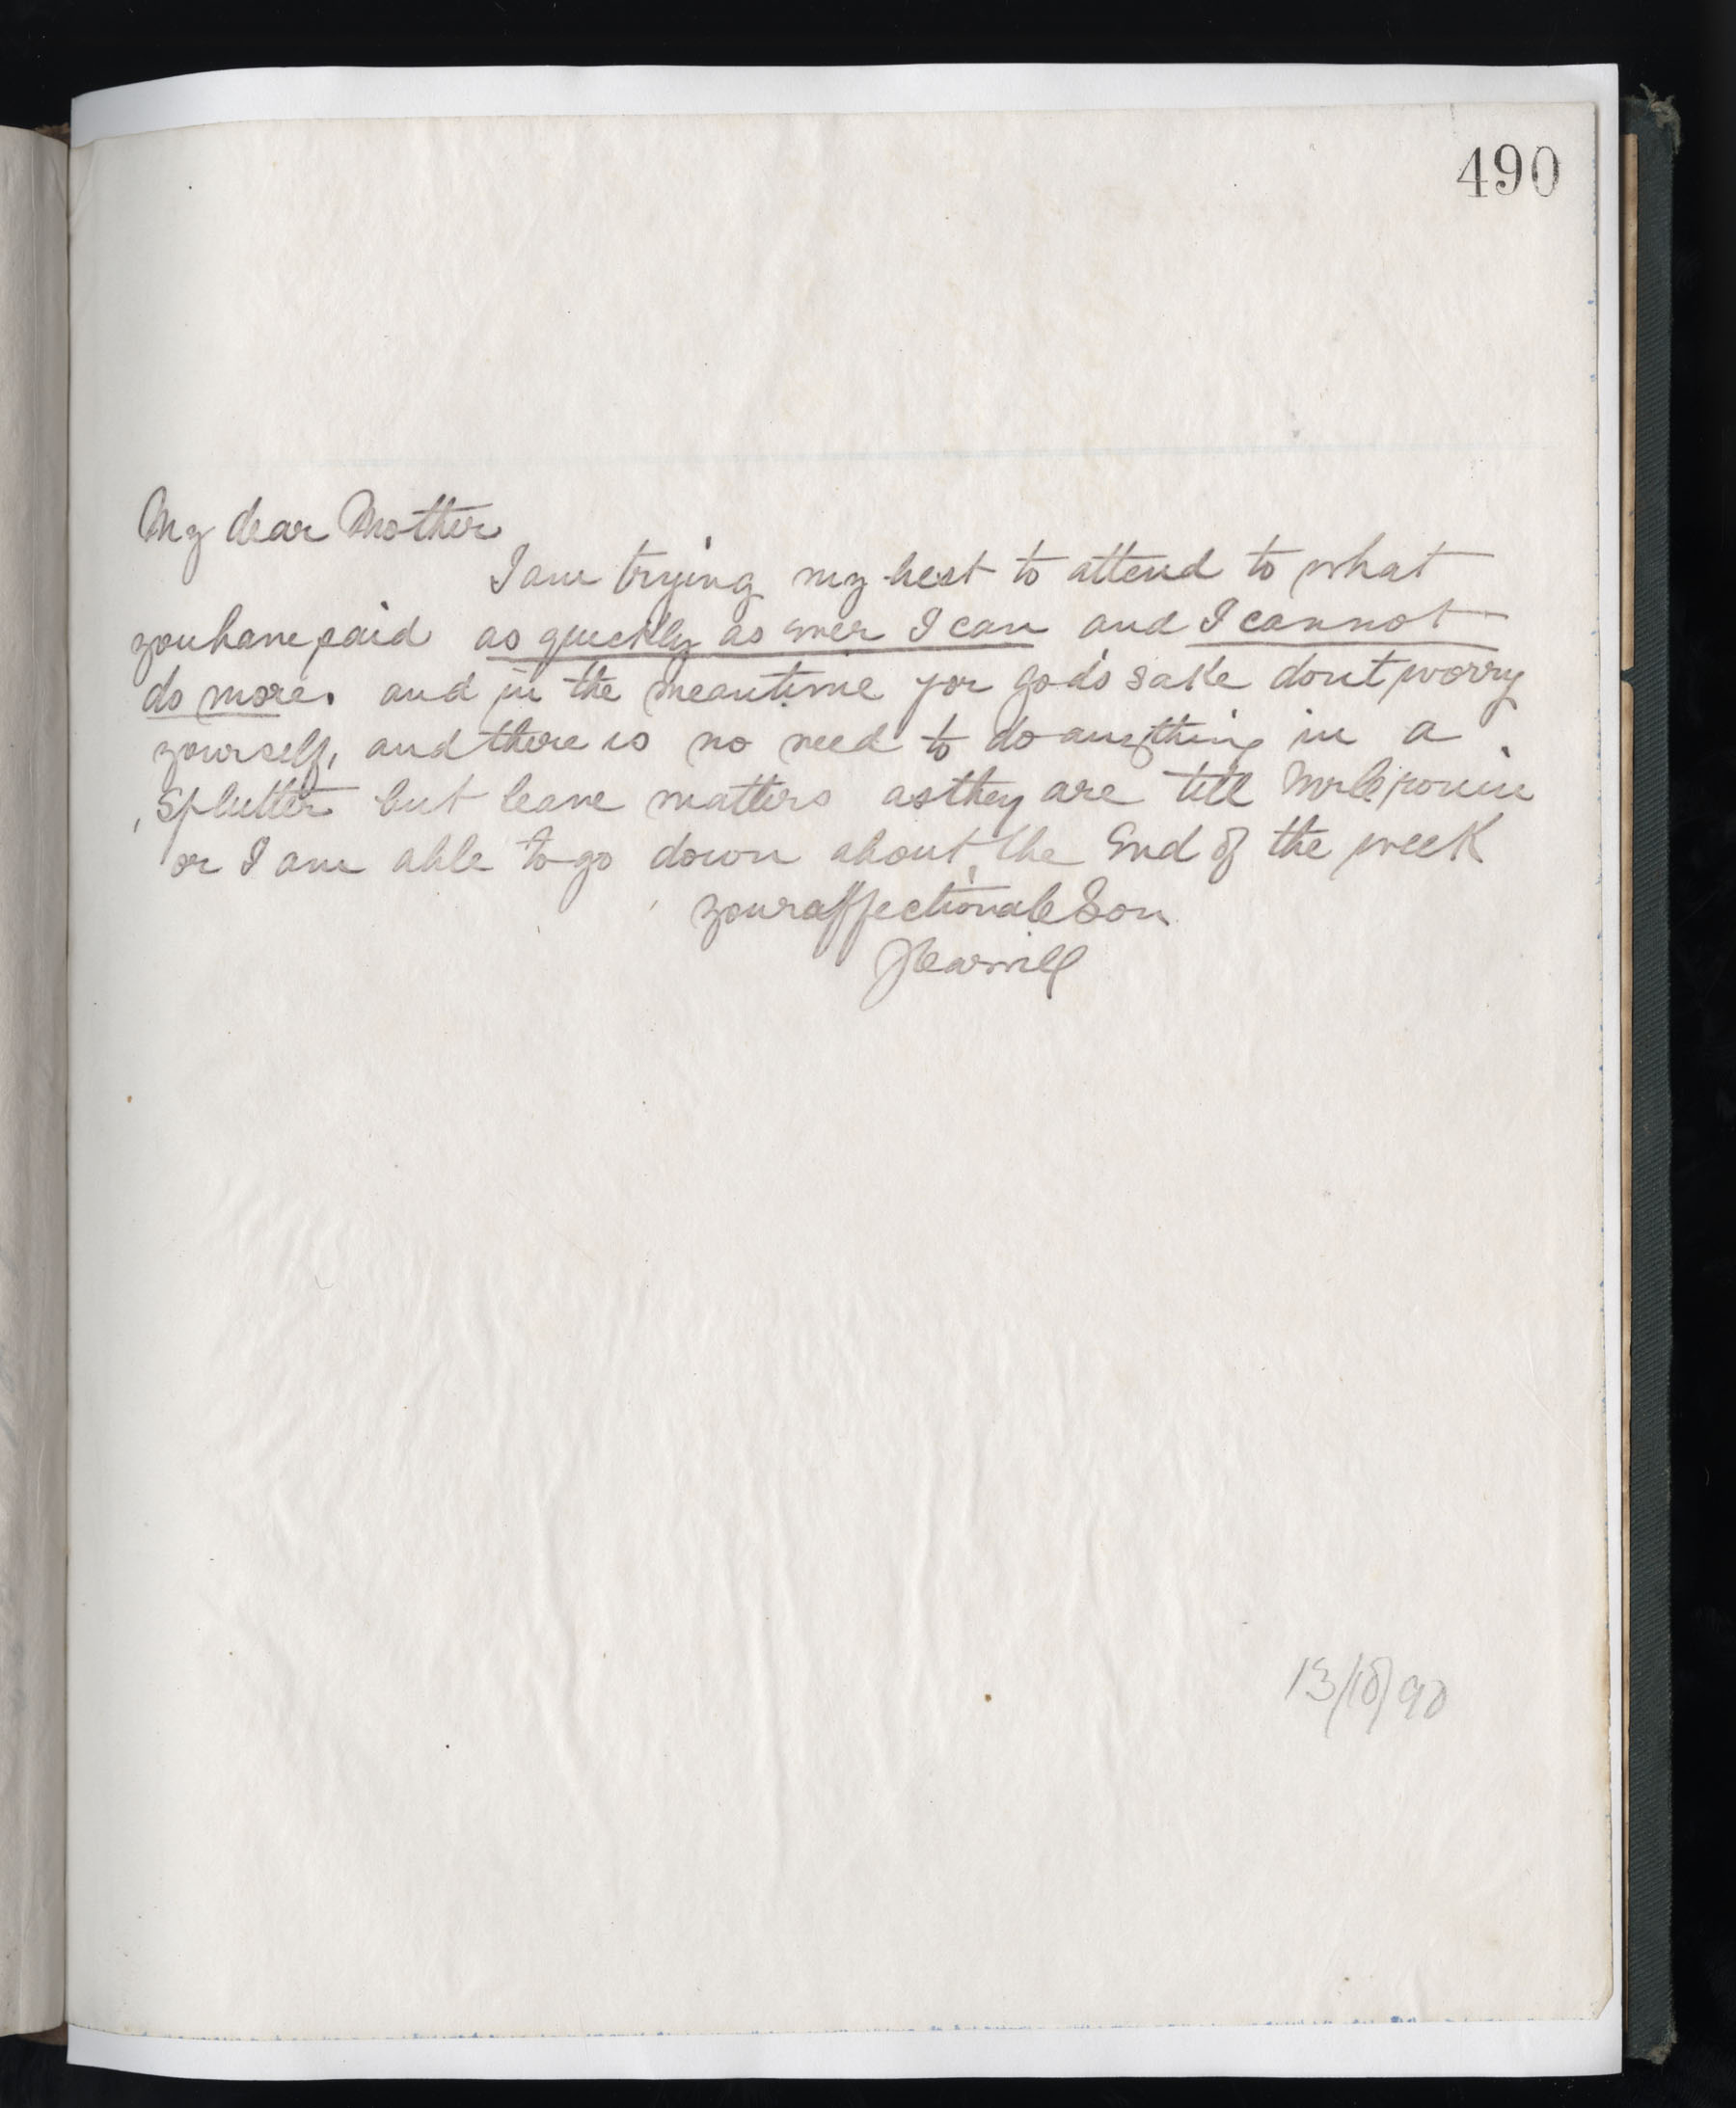 490
My dear Mother
I am trying my best to attend to what
you have said as quickly as ever I can and I cannot
do more. and in the meantime for gods sake dont worry
yourself, and there is no need to do anything in a
splutter but leave matters as they are till Mr
or I am able to go down about the end of the week
your affectionate Son
13/10/90